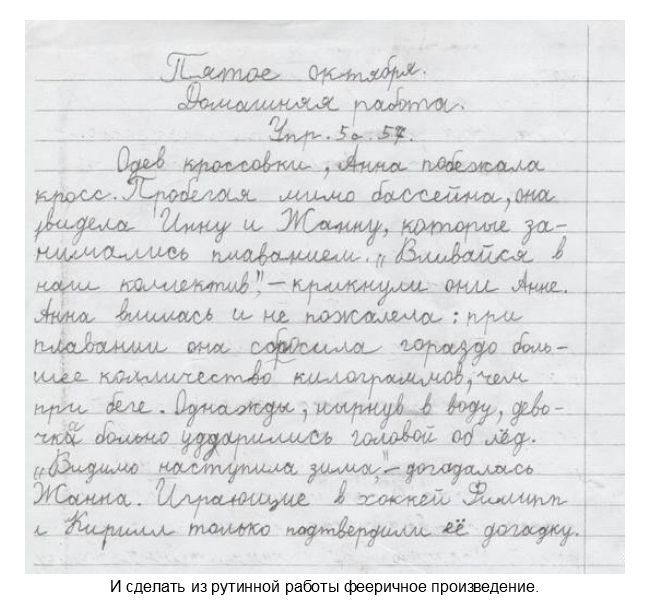 Пятое октября.
Домашняя работа.
Упр. 5 с. 57.
Одев кроссовки, Анна побежала
кросс. Пробегая мимо бассейна, она
увидела Инну и Жанну, которые за-
нимались плаванием. „Вливайся в
наш коллектив", – крикнули они Анне.
Анна влилась и не пожалела: при
плавании она сбросила гораздо боль-
шее колличество килограммов, чем
при беге. Однажды, нырнув в воду, дево-
чка больно уддарились головой об лёд.
„Видимо наступила зима", – догадалась
Жанна. Играющие в хоккей Филипп
и Кирилл только подтвердили её догадку.
И сделать из рутинной работы фееричное произведение.